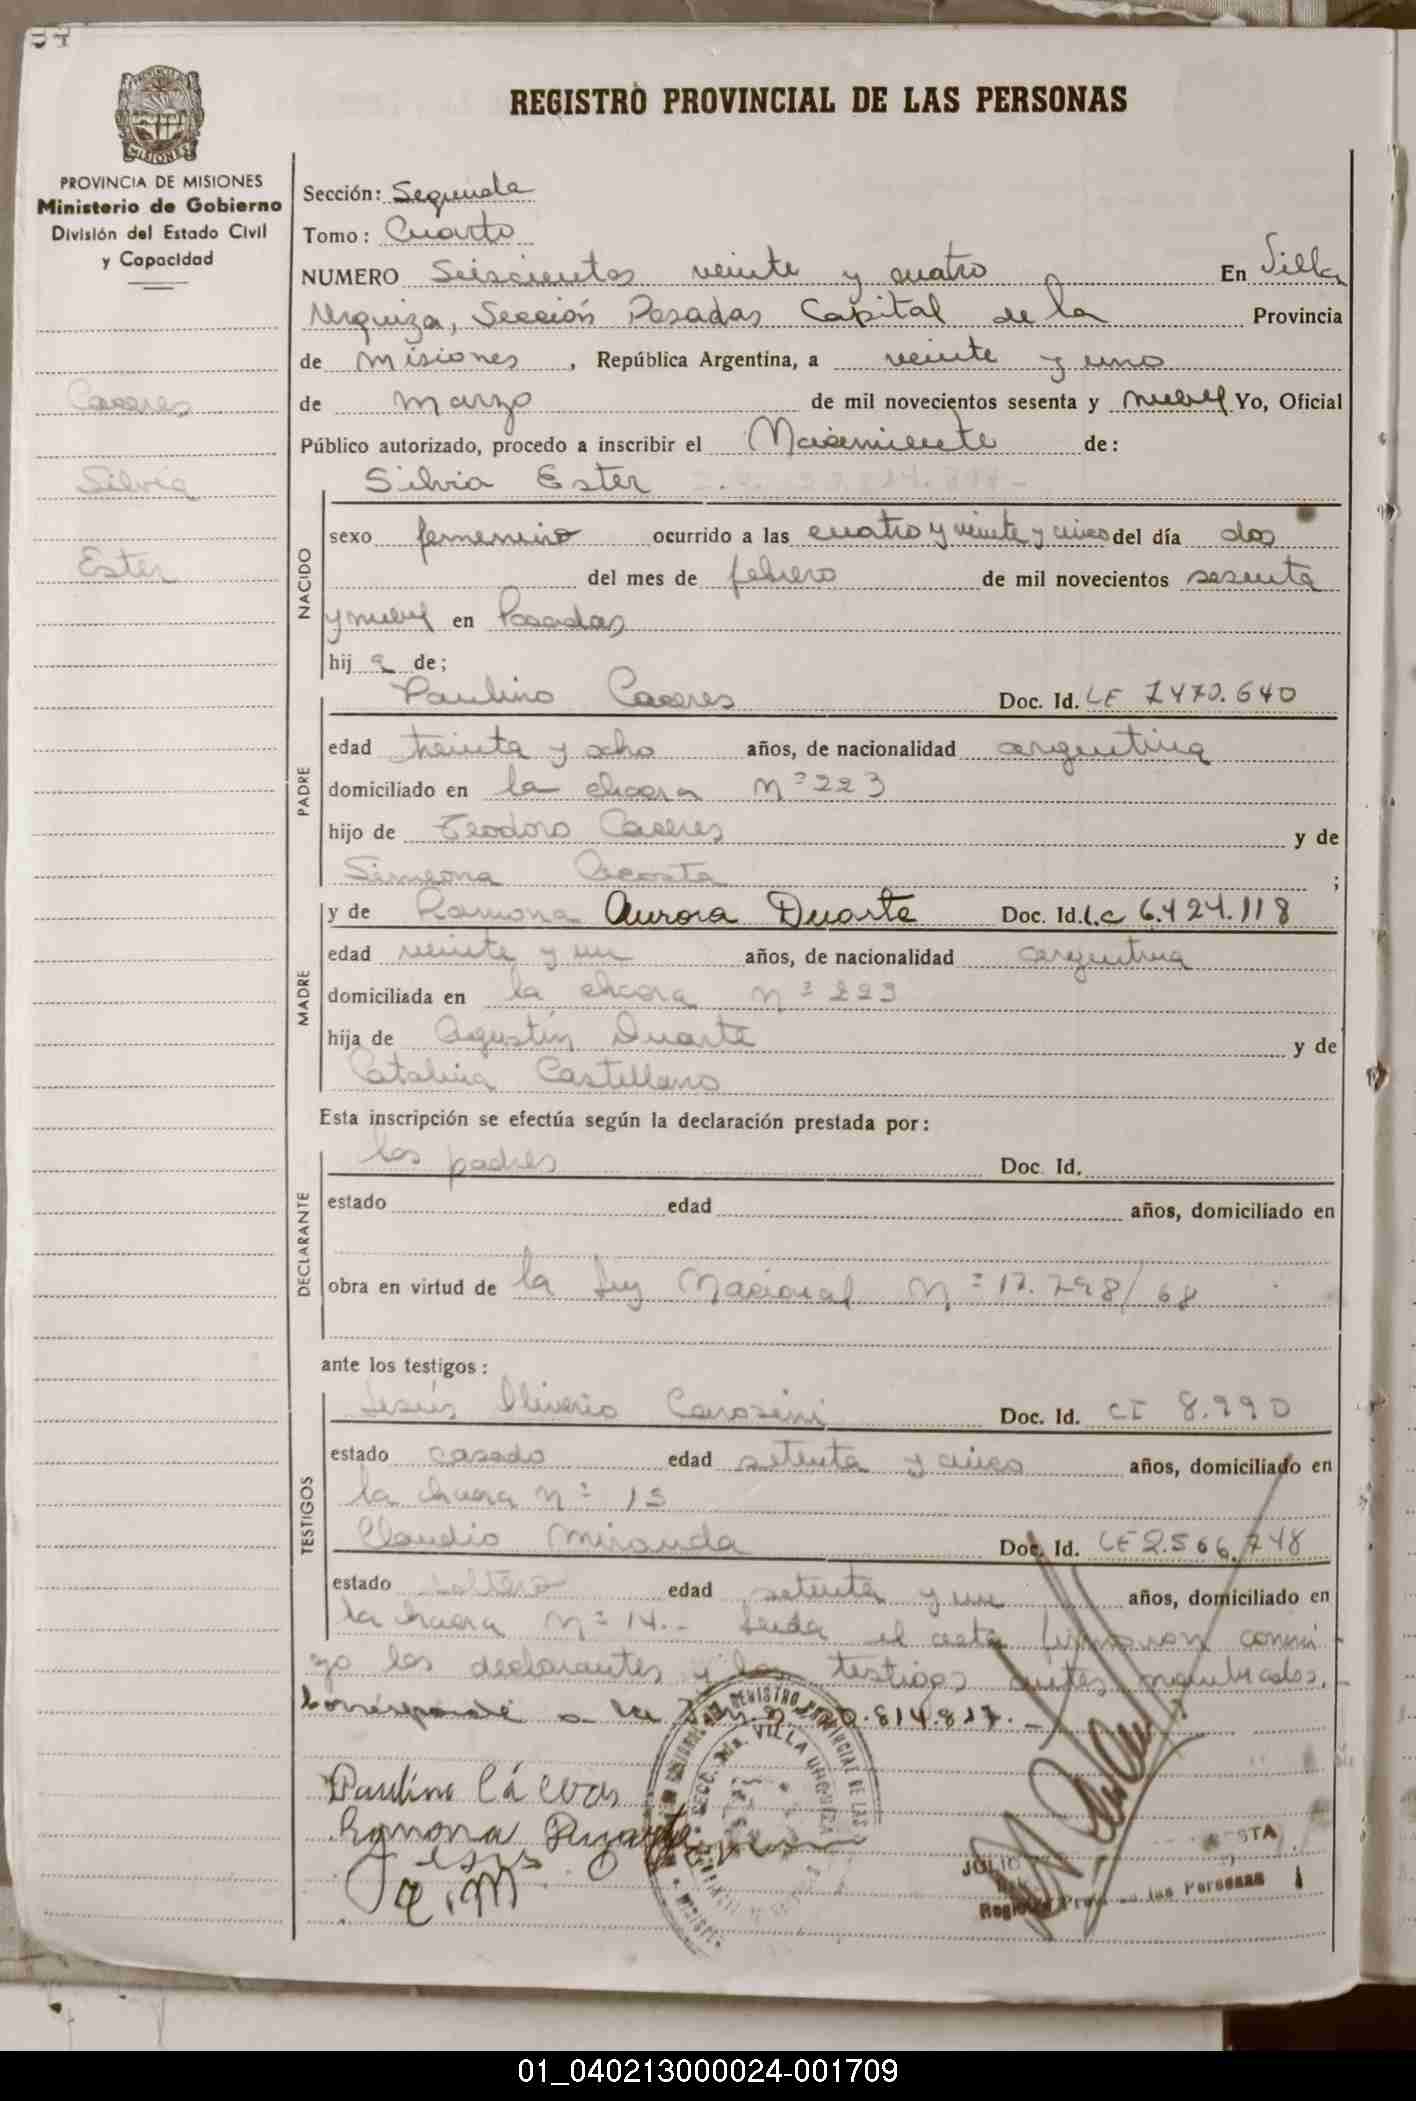 REGISTRO PROVINCIAL DE LAS PERSONAS
MISIONES
PROVINCIA DE MISIONES
Ministerio de Gobierno
División del Estado Civil
y Capacidad
Caceres
Silvia
Ester
Sección: Segunda
Tomo: Cuarto
NUMERO Seiscientos veinte y cuatro En Villa
Urquiza, Sección Posadas Capital de la Provincia
de Misiones, República Argentina, a veinte y uno
de marzo de mil novecientos sesenta y nueve Yo, Oficial
Público autorizado, procedo a inscribir el Nacimiento de:
Silvia Ester
NACIDO
sexo femenino ocurrido a las cuatro y veinte y cinco del día dos
del mes de febrero de mil novecientos sesenta
y nueve en Posadas
hij a de;
Paulino Caceres Doc. Id. LE 7470.640
PADRE
edad treinta y ocho años, de nacionalidad argentina
domiciliado en la chacra nº 223
hijo de Teodoro Caceres y de
Simeona Acosta ;
y de Ramona Aurora Duarte Doc. Id. L.C 6.424.118
MADRE
edad veinte y un años, de nacionalidad argentina
domiciliada en la chacra nº 223
hija de Agustín Duarte y de
Catalina Castellano
Esta inscripción se efectúa según la declaración prestada por:
los padres Doc. Id.
DECLARANTE
estado edad años, domiciliado en
obra en virtud de la Ley Nacional Nº 17.798/68
ante los testigos:
Jesús Oliverio Carosini Doc. Id. CI 8.990
TESTIGOS
estado casado edad setenta y cinco años, domiciliado en
la chacra nº 15
Claudio Miranda Doc. Id. LE 2.566.748
estado soltero edad setenta y un años, domiciliado en
la chacra nº 14.- Leida el acta firmaron conmi
go los declarantes y los testigos antes nombrados.-
Corresponde a la 814.817.-
Paulino Cáceres
Ramona Duarte
Jesus
C.M
REGISTRO PROVINCIAL DE LAS
SECC. 2da. VILLA URQUIZA
JULIO
Registro Prov. de las Personas
01_040213000024-001709